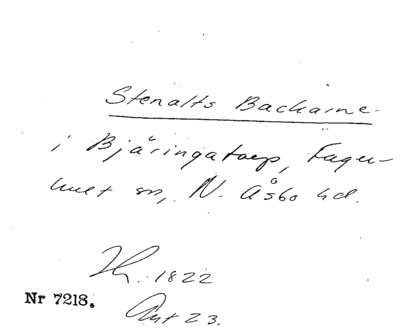 Stenalts Backarne.
i Bjäringatorp, Fager-
hult sn, N. Åsbo hd.
1822
Nr 7218.
Ant 23.